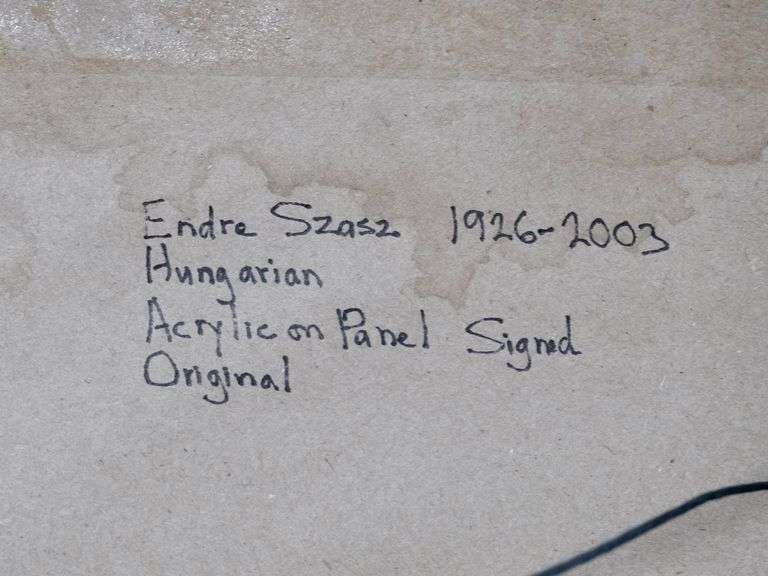 Endre Szasz 1926-2003
Hungarian
Acrylic on Panel Signed
Original